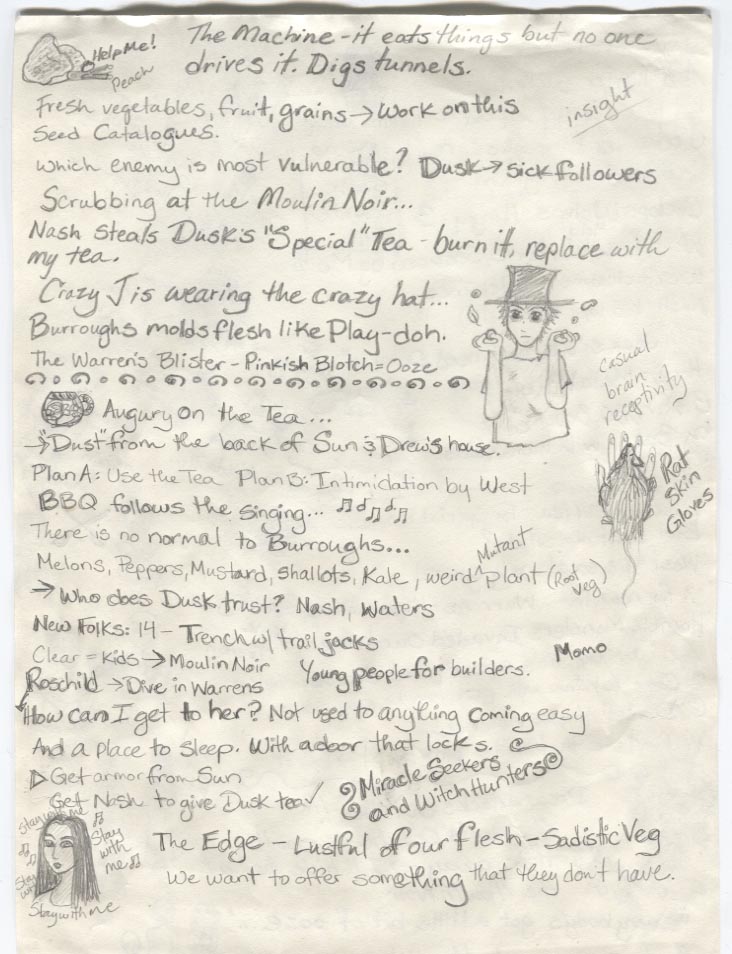 Help Me!
Peach
The Machine - it eats things but no one
drives it. Digs tunnels.
Fresh vegetables, fruit, grains → Work on this
insight
Seed Catalogues.
Which enemy is most vulnerable? Dusk → sick followers
Scrubbing at the Moulin Noir...
Nash steals Dusk's "Special" Tea - burn it, replace with
my tea.
Crazy J is wearing the crazy hat...
Burroughs molds flesh like Play-doh.
The Warren's Blister - Pinkish Blotch = Ooze
casual
brain
receptivity
Augury on the Tea...
→ "Dust" from the back of Sun & Drew's house.
Rat
Skin
Gloves
Plan A: Use the Tea Plan B: Intimidation by West
BBQ follows the singing... ♫♪♫♪♫
There is no normal to Burroughs...
Melons, Peppers, Mustard, Shallots, Kale, weird ^Mutant plant (Root Veg)
→ Who does Dusk trust? Nash, Waters
New Folks: 14 - Trench w/ trail jacks
Clear = Kids → Moulin Noir
Young people for builders.
Momo
Roschild → Dive in Warrens
How can I get to her? Not used to anything coming easy
And a place to sleep. With a door that locks.
▷ Get armor from Sun
Get Nash to give Dusk tea ✓
Miracle Seekers
and Witch Hunters
Stay with me
Stay
with
me ♫
Stay with me
The Edge - Lustful of our flesh - Sadistic Veg
We want to offer something that they don't have.